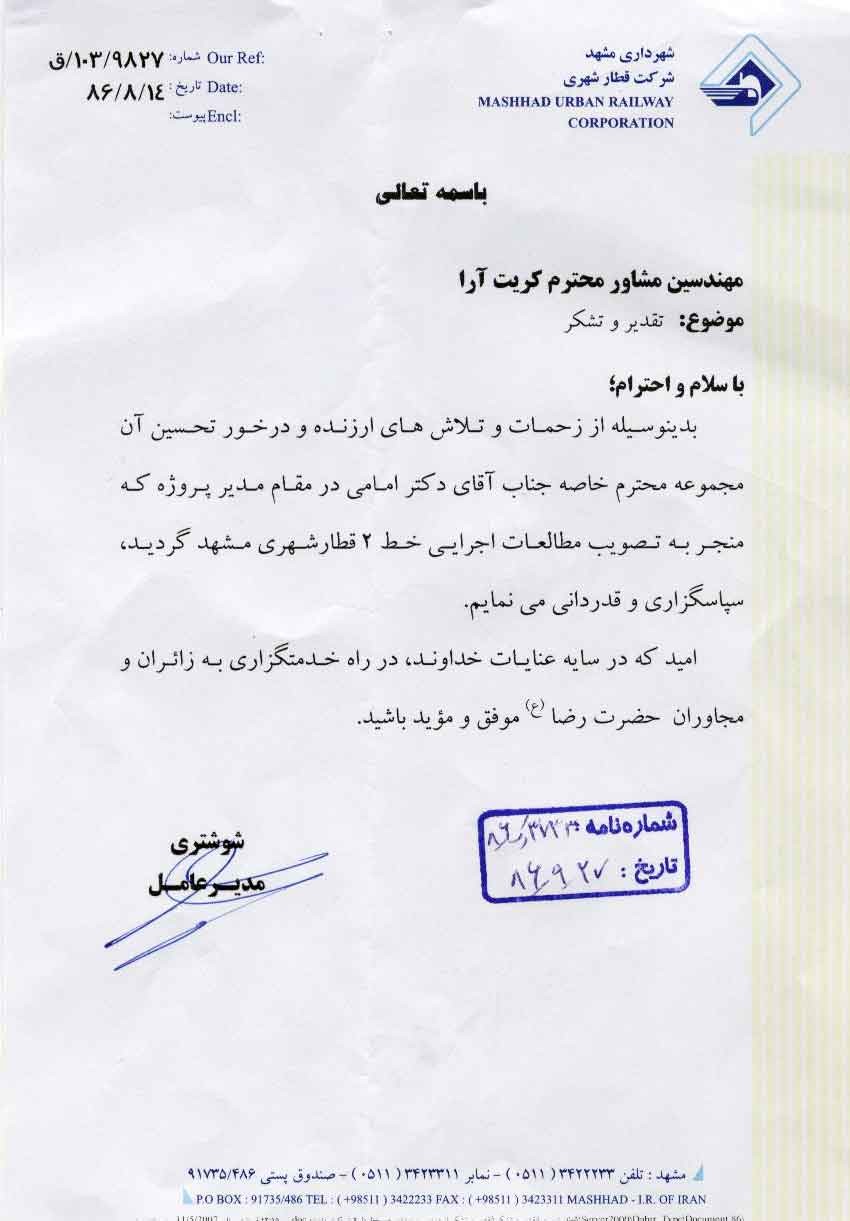 شهرداری مشهد
شرکت قطار شهری
MASHHAD URBAN RAILWAY
CORPORATION
Our Ref: شماره: ۱۰۳/۹۸۲۷/ق
Date: تاریخ: ۸۶/۸/۱٤
Encl: پیوست:
باسمه تعالی
مهندسین مشاور محترم کریت آرا
موضوع: تقدیر و تشکر
با سلام و احترام؛
بدینوسیله از زحمات و تلاش های ارزنده و درخور تحسین آن
مجموعه محترم خاصه جناب آقای دکتر امامی در مقام مدیر پروژه که
منجر به تصویب مطالعات اجرایی خط ۲ قطارشهری مشهد گردید،
سپاسگزاری و قدردانی می نمایم.
امید که در سایه عنایات خداوند، در راه خدمتگزاری به زائران و
مجاوران حضرت رضا (ع) موفق و مؤید باشید.
شوشتری
مدیرعامل
شماره نامه:
تاریخ: ۸۶/۹/۲۷
مشهد : تلفن ۳۴۲۲۲۳۳ (۰۵۱۱) - نمابر ۳۴۲۳۳۱۱ (۰۵۱۱) - صندوق پستی ۹۱۷۳۵/۴۸۶
P.O BOX : 91735/486 TEL : ( +98511 ) 3422233 FAX : ( +98511 ) 3423311 MASHHAD - I.R. OF IRAN